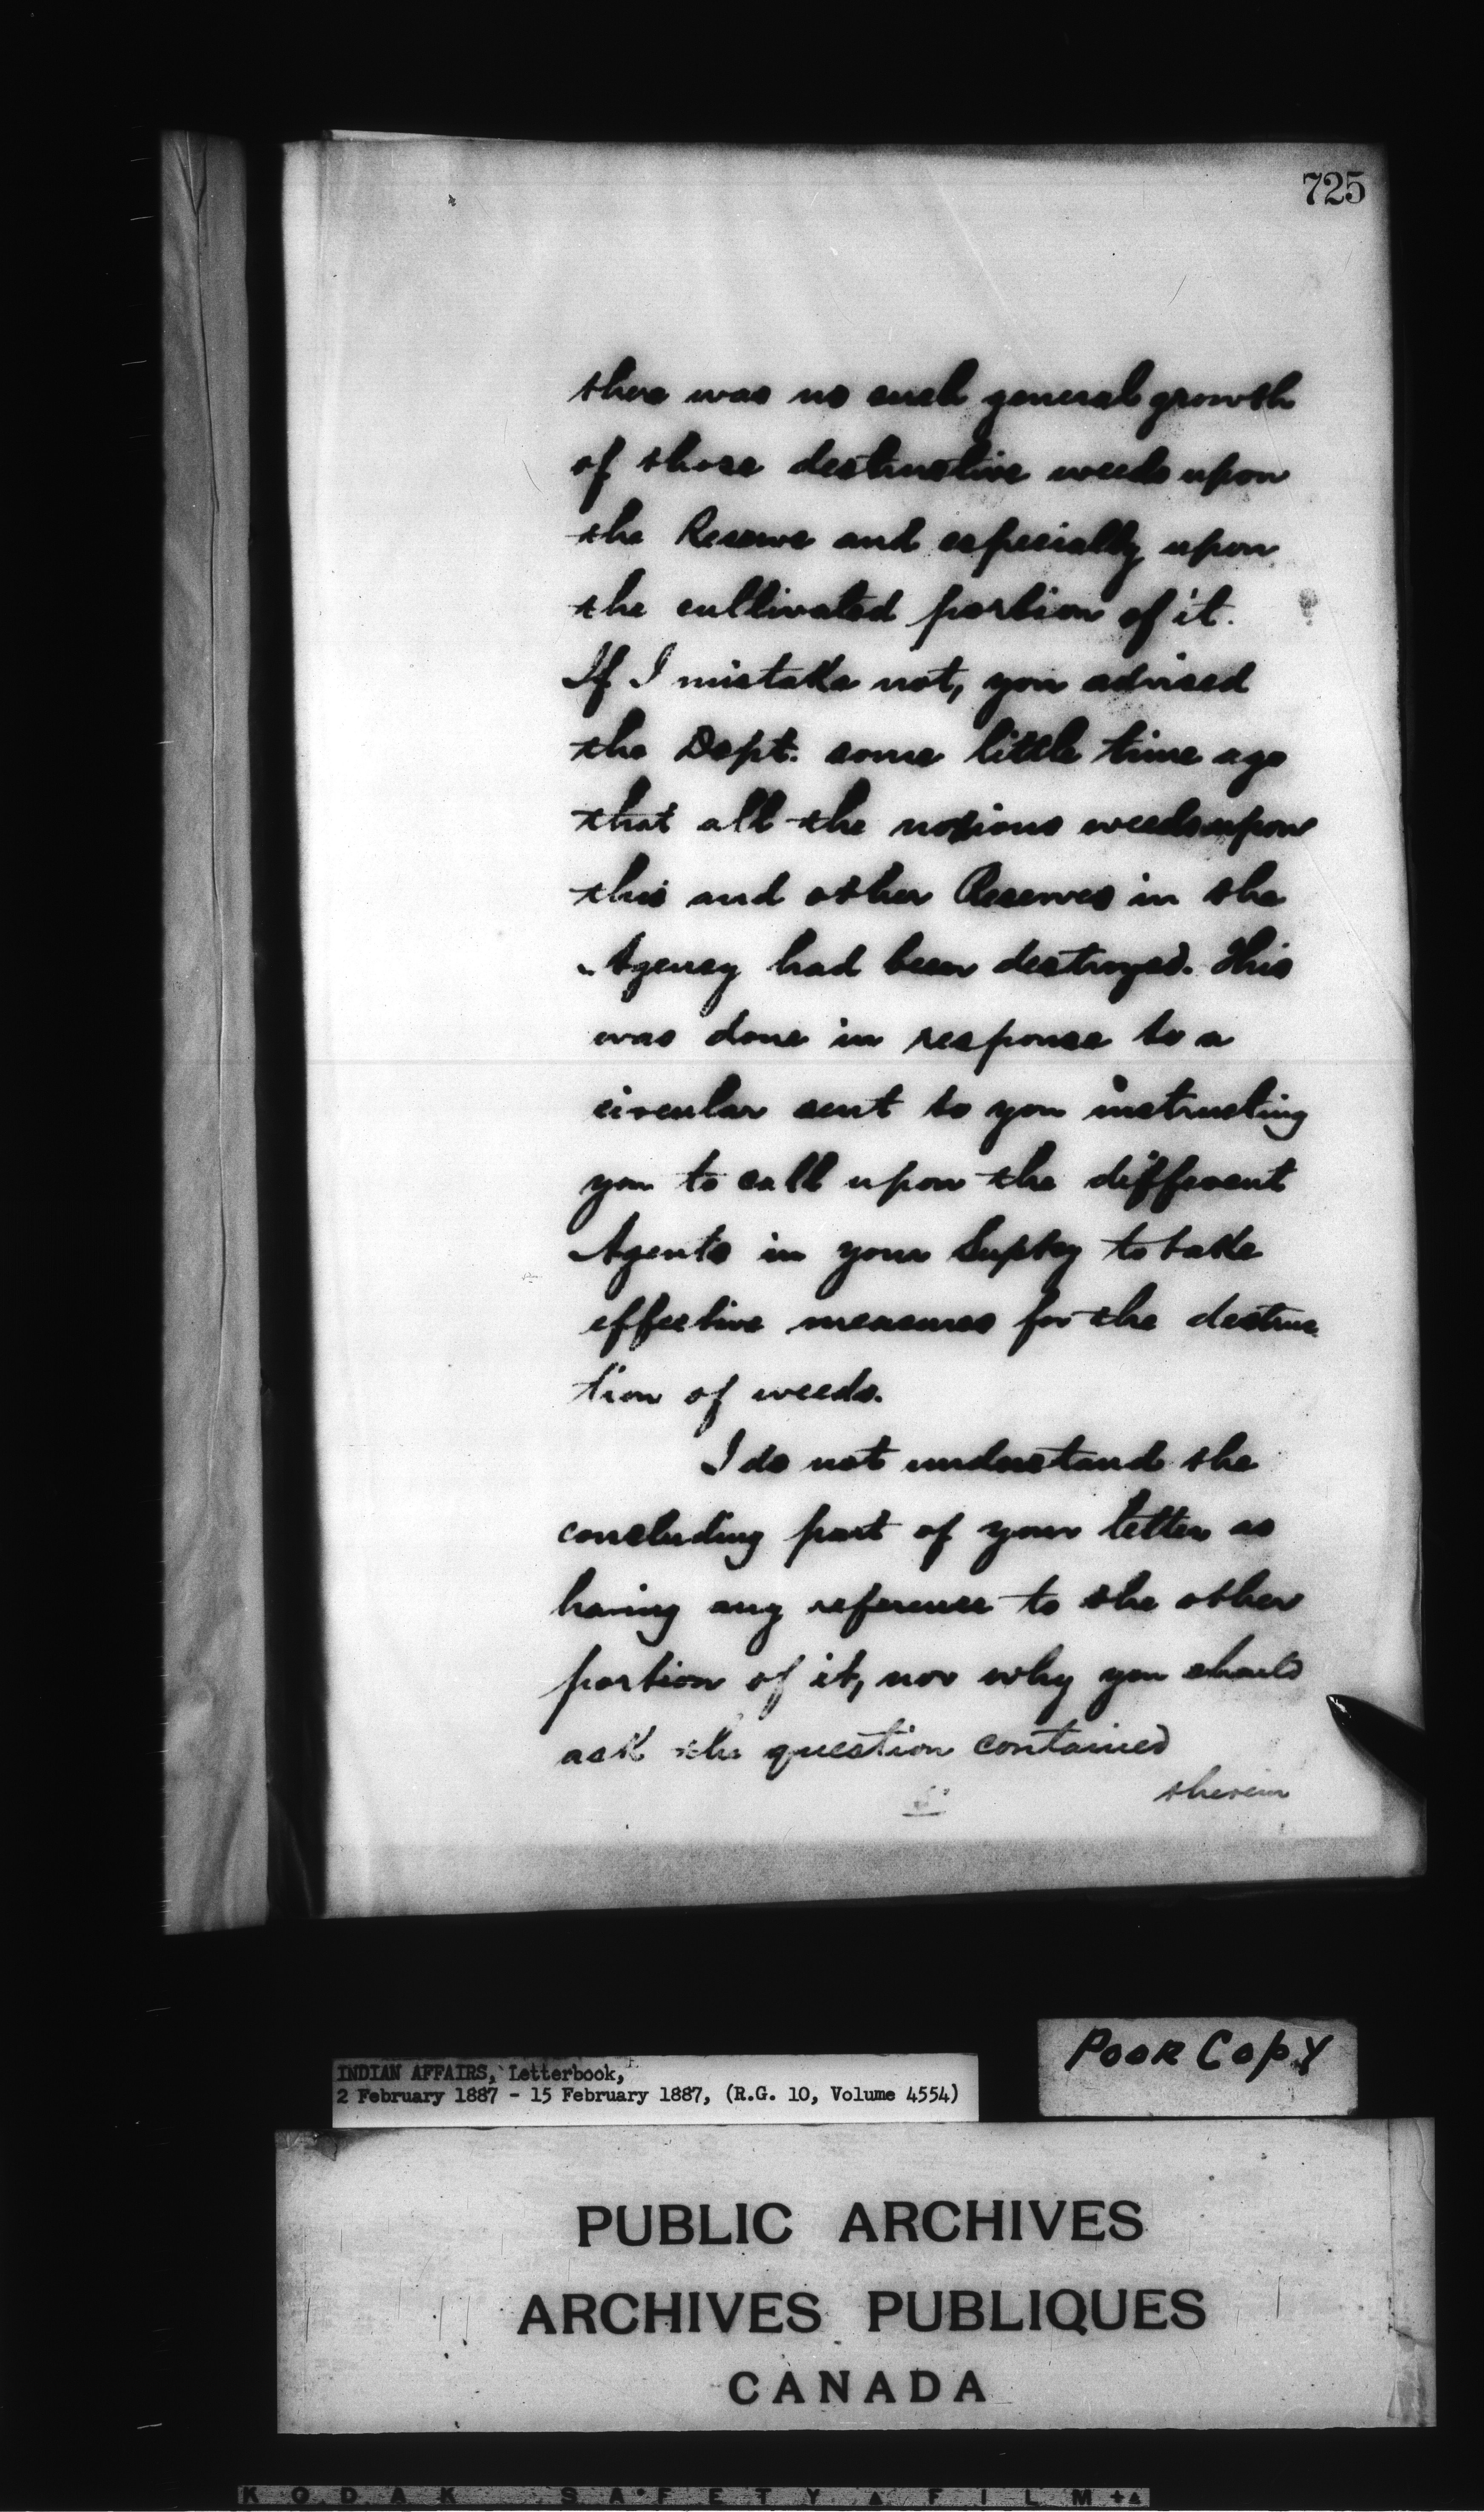 725
there was no such general growth
of those destructive weeds upon
the Reserve and especially upon
the cultivated portion of it.
If I mistake not, you advised
the Dept. some little time ago
that all the noxious weeds upon
this and other Reserves in the
Agency had been destroyed. This
was done in response to a
circular sent to you instructing
you to call upon the different
Agents in your Suptcy to take
effective measures for the destruc
tion of weeds.
I do not understand the
concluding part of your letter as
having any reference to the other
portion of it, nor why you should
ask the question contained
therein
POOR COPY
INDIAN AFFAIRS, Letterbook,
2 February 1887 - 15 February 1887, (R.G. 10, Volume 4554)
PUBLIC ARCHIVES
ARCHIVES PUBLIQUES
CANADA
KODAK SAFETY FILM